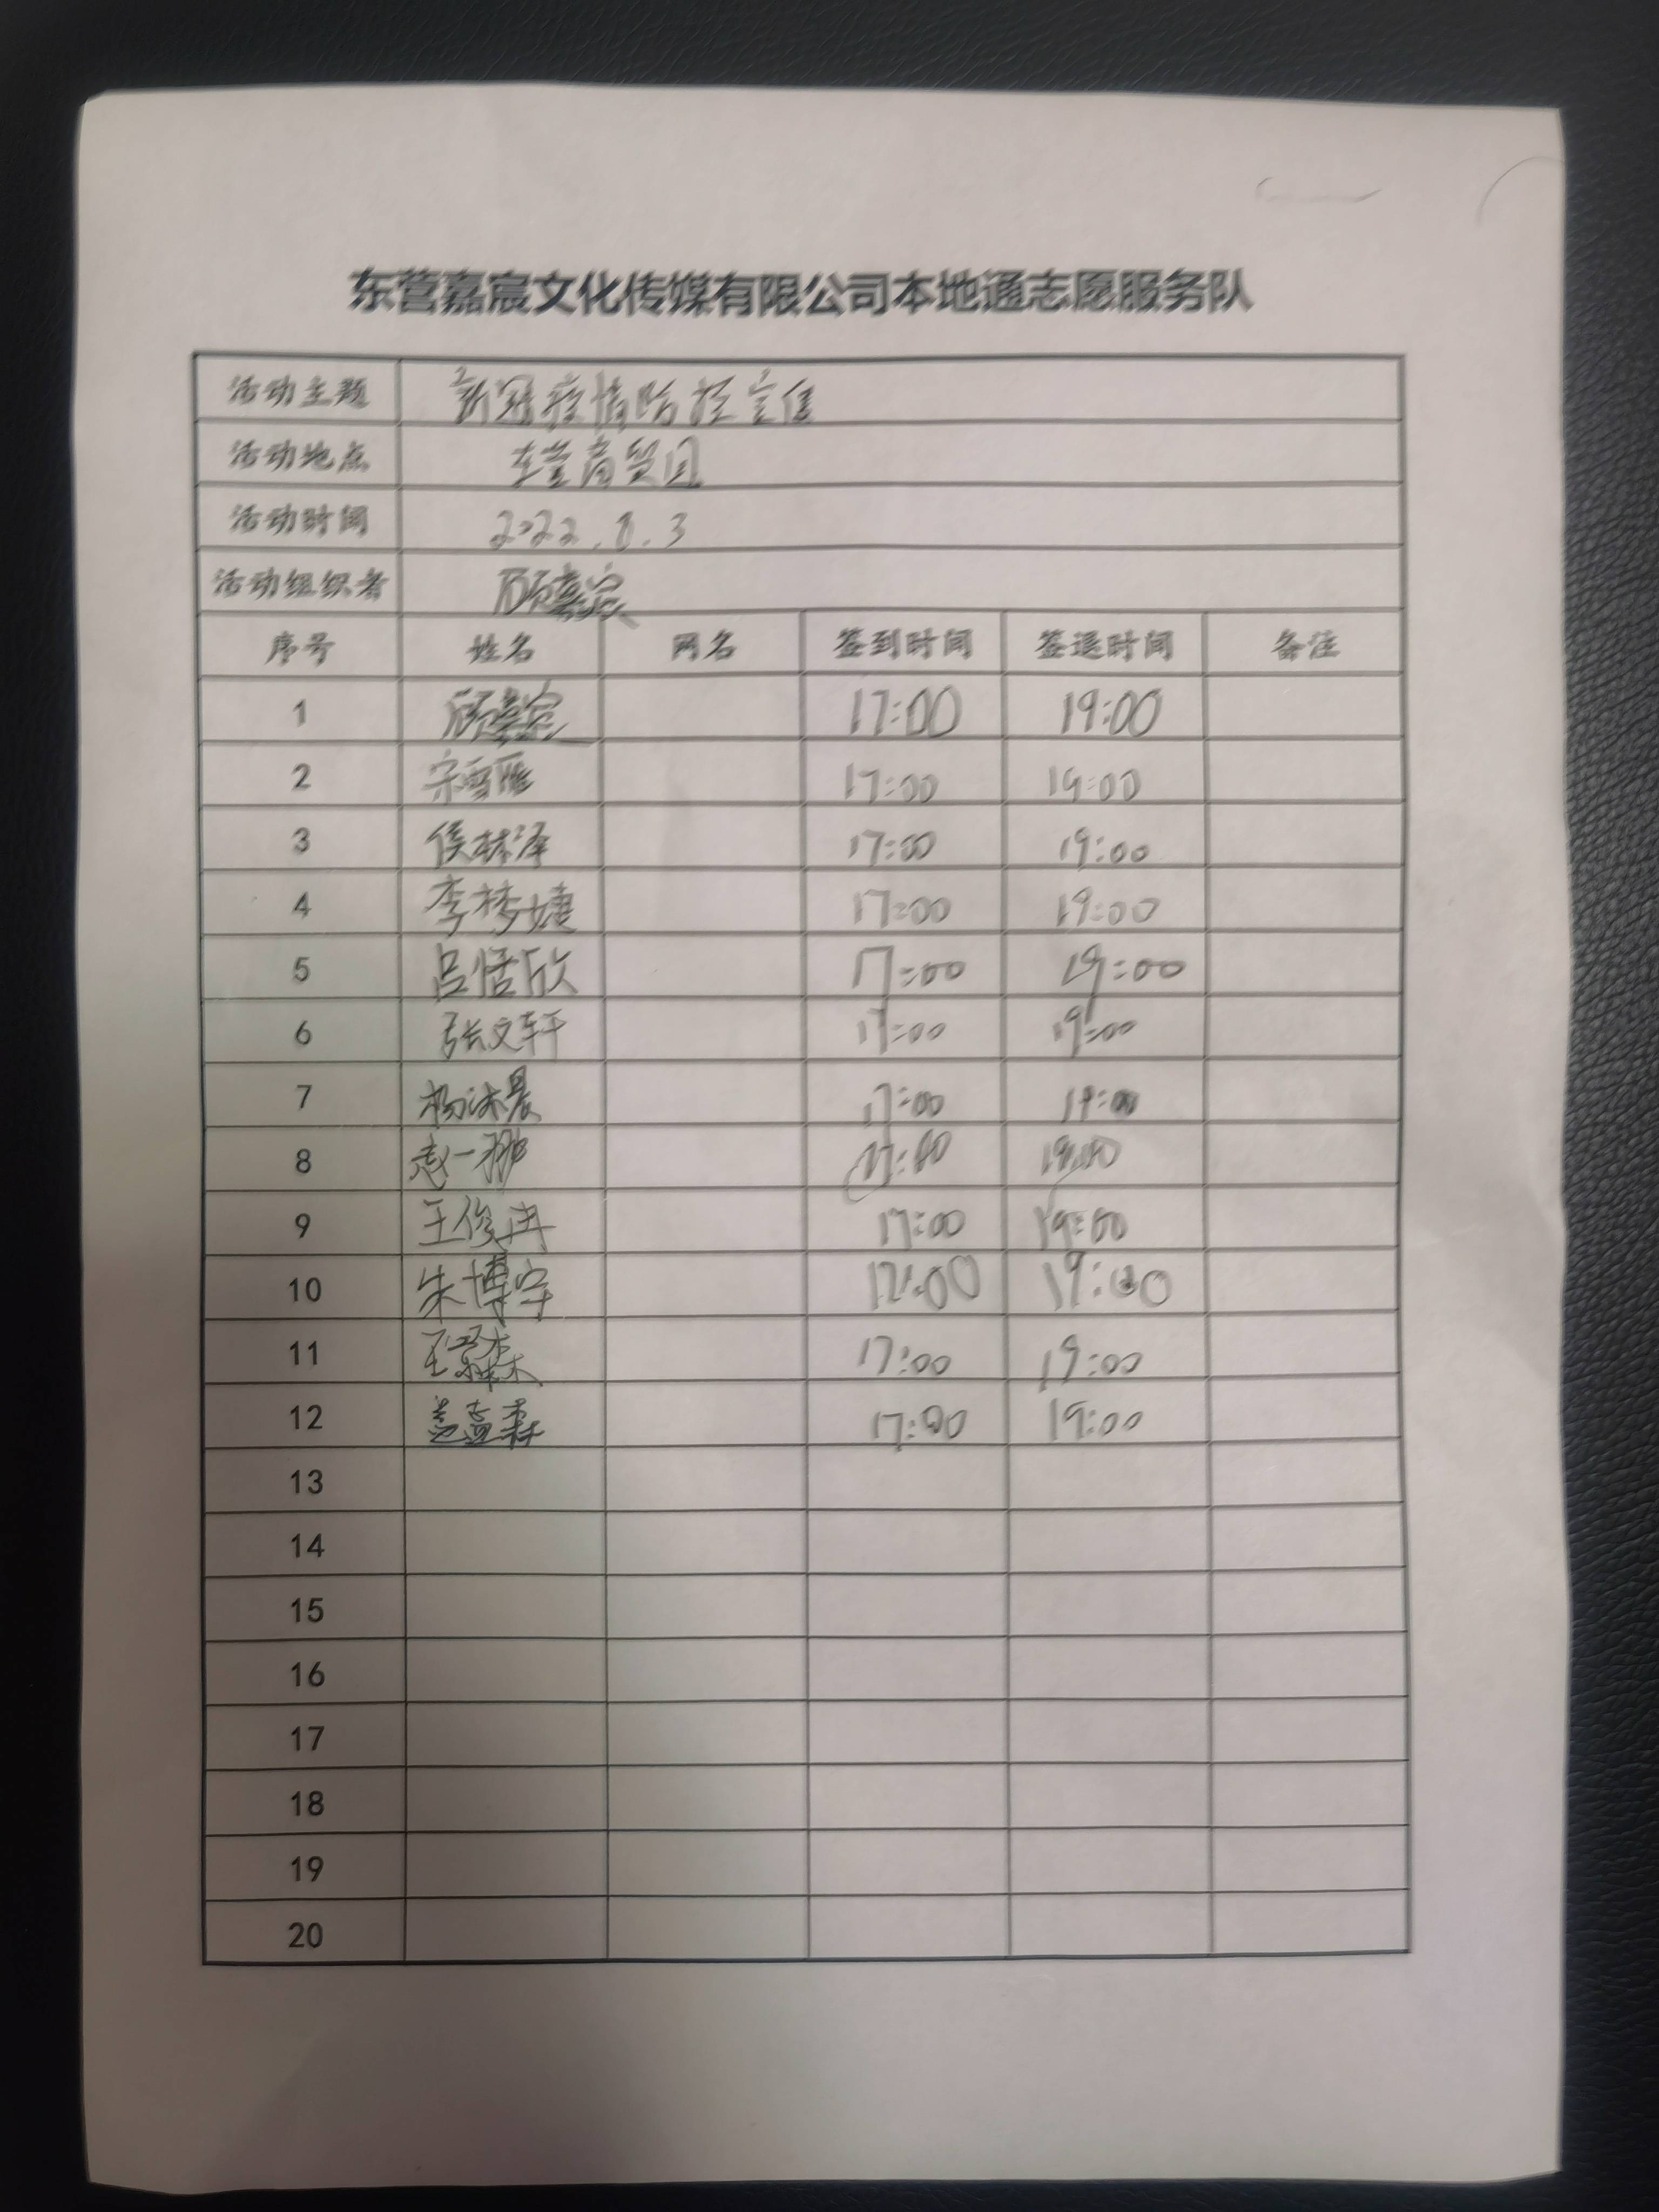 东营嘉宸文化传媒有限公司本地通志愿服务队
活动主题 新冠疫情防控宣传
活动地点 东营商贸园
活动时间 2022.8.3
活动组织者 顾嘉宸
序号 姓名 网名 签到时间 签退时间 备注
1 顾嘉宸 17:00 19:00
2 宋雪雁 17:00 19:00
3 侯林泽 17:00 19:00
4 李梦婕 17:00 19:00
5 吕恬欣 17:00 19:00
6 张文轩 17:00 19:00
7 杨沐晨 17:00 19:00
8 赵一翀 17:00 19:00
9 王俊冉 17:00 19:00
10 朱博宇 17:00 19:00
11 17:00 19:00
12 17:00 19:00
13
14
15
16
17
18
19
20